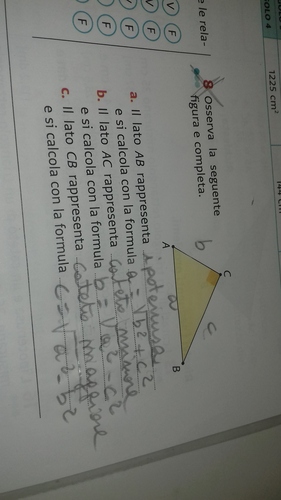 OLO 4
1225 cm²
144 cm
e le rela-
V F
V F
F
F
F
8 Osserva la seguente
figura e completa.
b
C
c
A
a
B
a. Il lato AB rappresenta ipotenusa
e si calcola con la formula a = √b² + c²
b. Il lato AC rappresenta cateto minore
e si calcola con la formula b = √a² - c²
c. Il lato CB rappresenta cateto maggiore
e si calcola con la formula c = √a² - b²